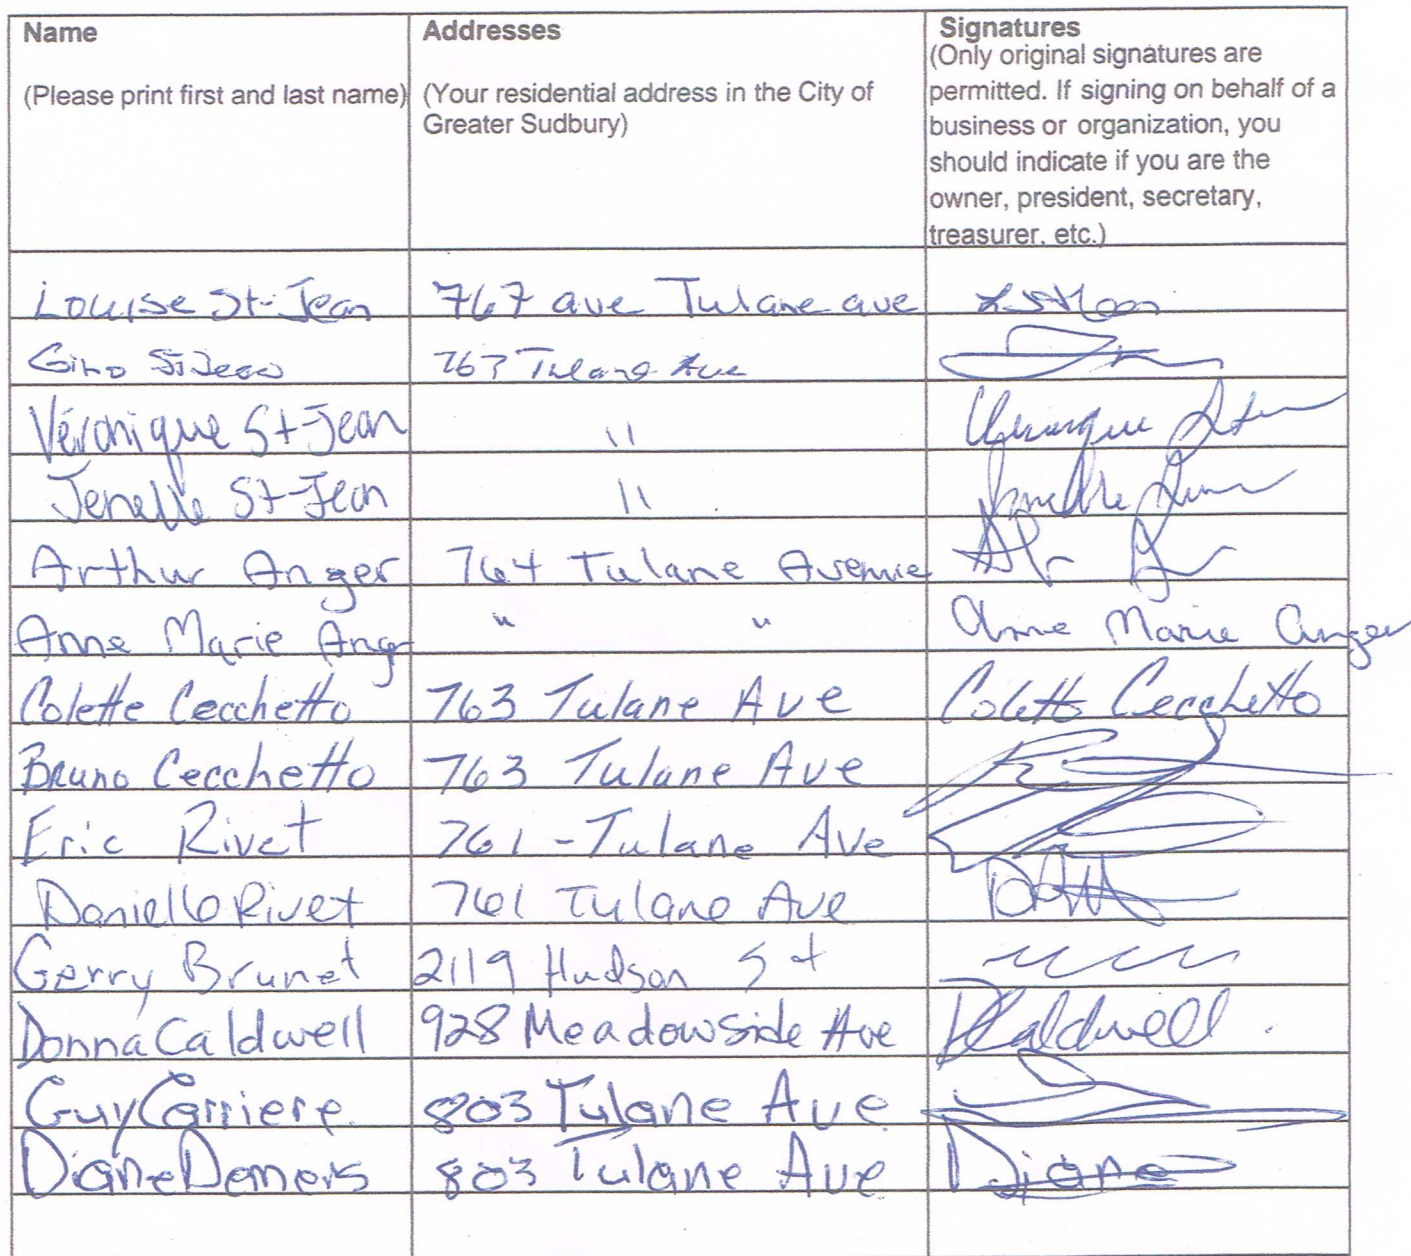 Name
Addresses
Signatures
(Please print first and last name)
(Your residential address in the City of
Greater Sudbury)
(Only original signatures are
permitted. If signing on behalf of a
business or organization, you
should indicate if you are the
owner, president, secretary,
treasurer, etc.)
Louise St-Jean 767 ave Tulane ave
Gino St Jean 767 Tulane Ave
Véronique St-Jean "
Jenelle St-Jean "
Arthur Anger 764 Tulane Avenue
Anne Marie Anger " " Anne Marie Anger
Colette Cecchetto 763 Tulane Ave Colette Cecchetto
Bruno Cecchetto 763 Tulane Ave
Eric Rivet 761 - Tulane Ave
Danielle Rivet 761 Tulane Ave
Gerry Brunet 2119 Hudson St
Donna Caldwell 928 Meadowside Ave DCaldwell.
Guy Carriere. 803 Tulane Ave
Diane Demers 803 Tulane Ave Diane